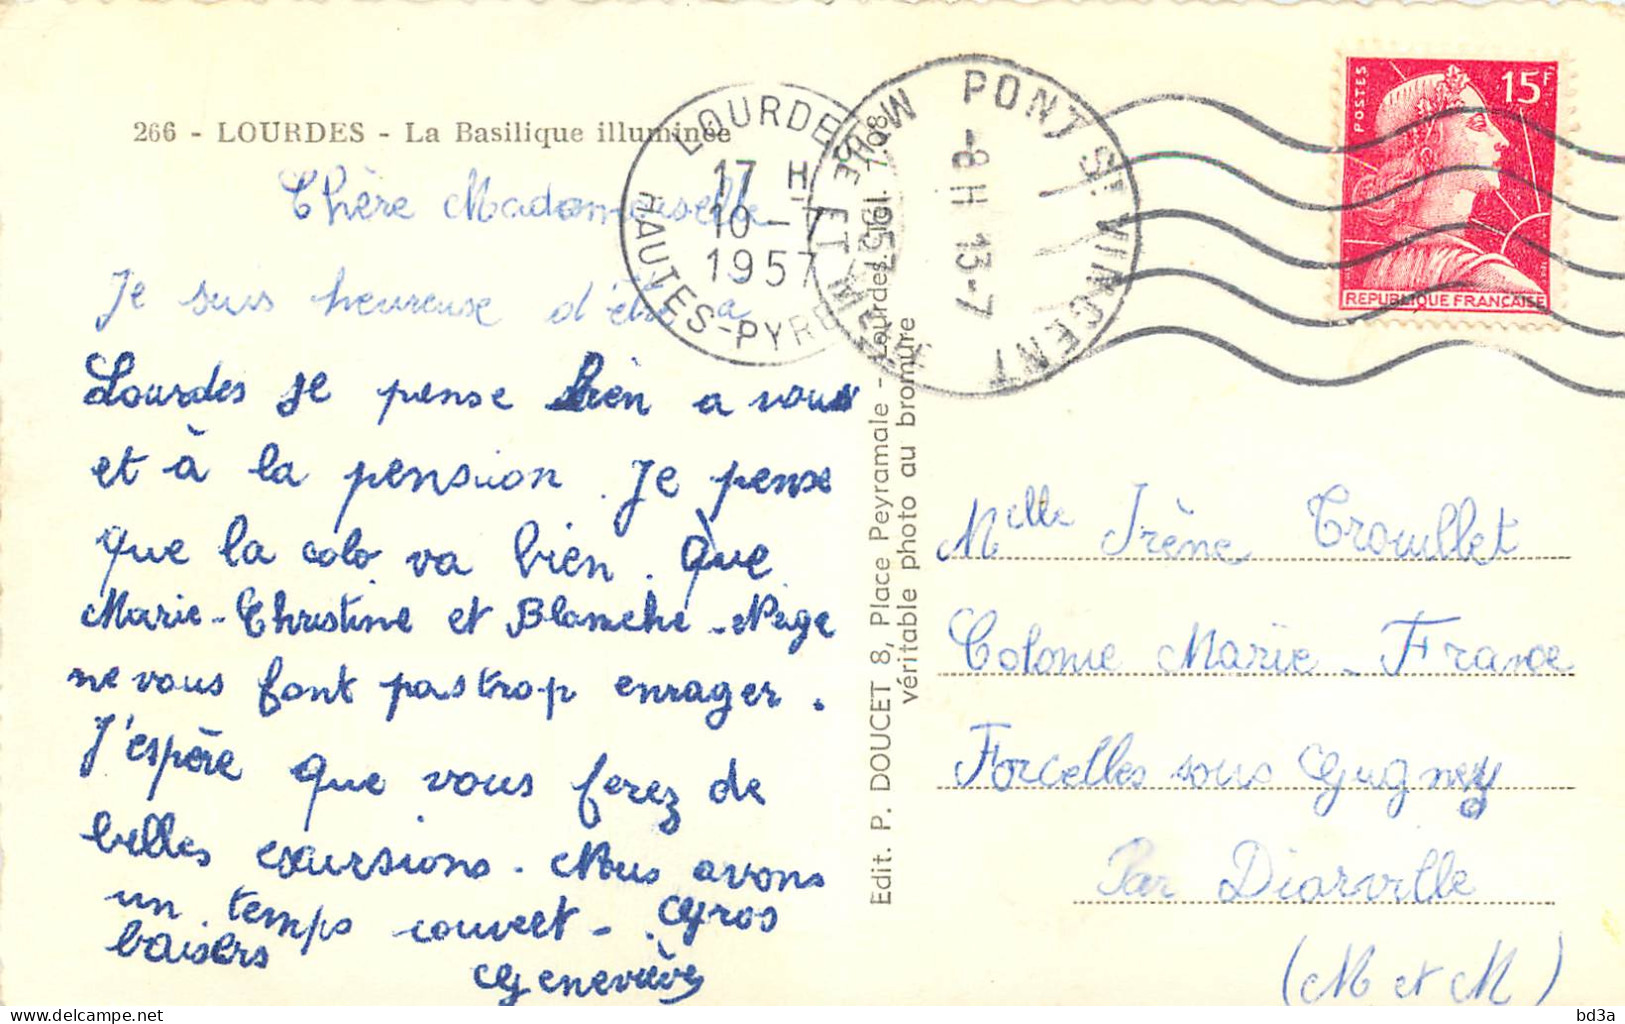 266 - LOURDES - La Basilique illuminée
Chère Mademoiselle
Je suis heureuse d'être a
Lourdes Je pense bien a vous
et à la pension. Je pense
que la colo va bien. Que
Marie-Christine et Blanche-Neige
ne vous font pas trop enrager.
J'espère que vous ferez de
belles excursions. Nous avons
un temps couvert - Gros
baisers
Geneviève
LOURDES
17 H
10-7
1957
HAUTES-PYRE
PONT ST VINCENT
-8H 13-7
1957
MURTHE ET M
Edit. P. DOUCET 8, Place Peyramale - Lourdes. Tél. 7.08
véritable photo au bromure
POSTES
15F
REPUBLIQUE FRANÇAISE
Melle Irène Trouillet
Colonie Marie-France
Forcelles sous Gugney
Par Diarville
(M et M)
bd3a